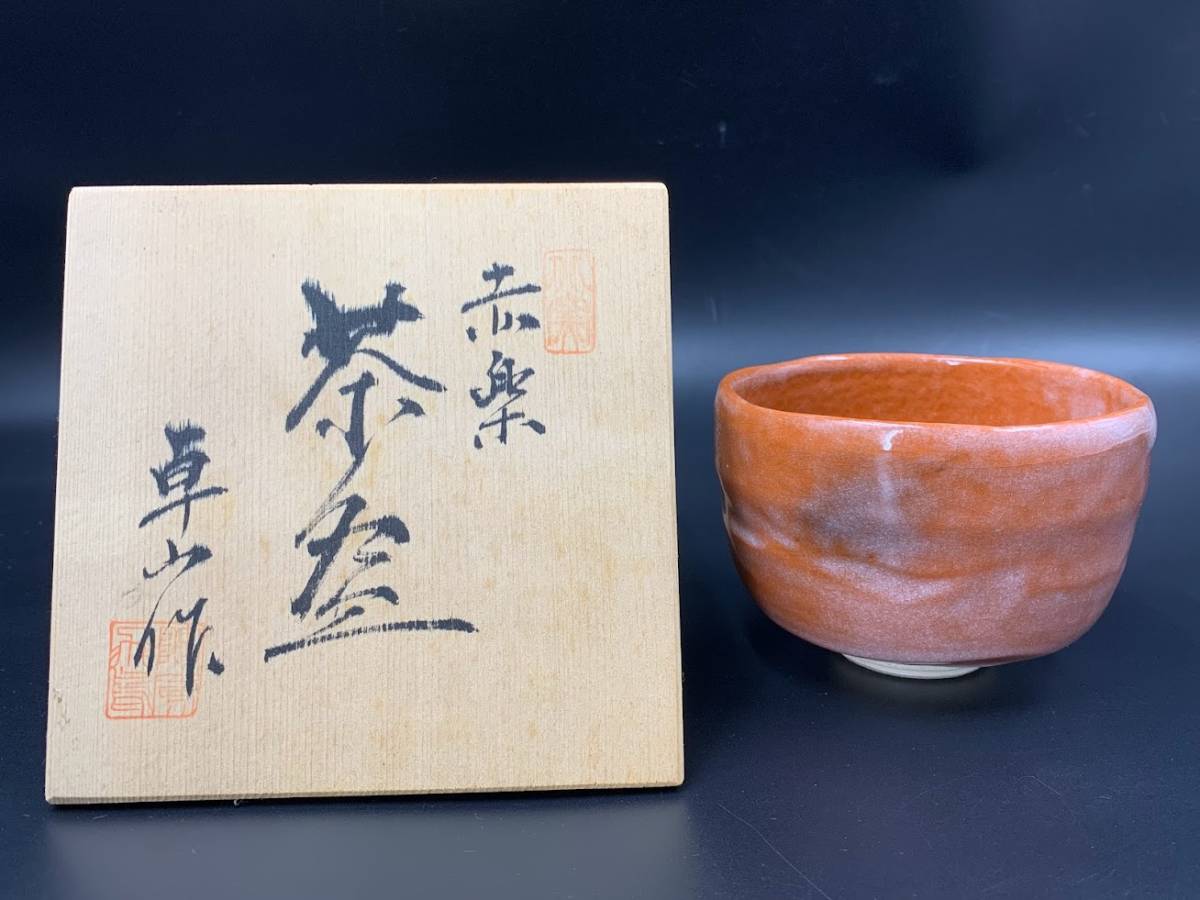 赤楽
茶盌
卓山作